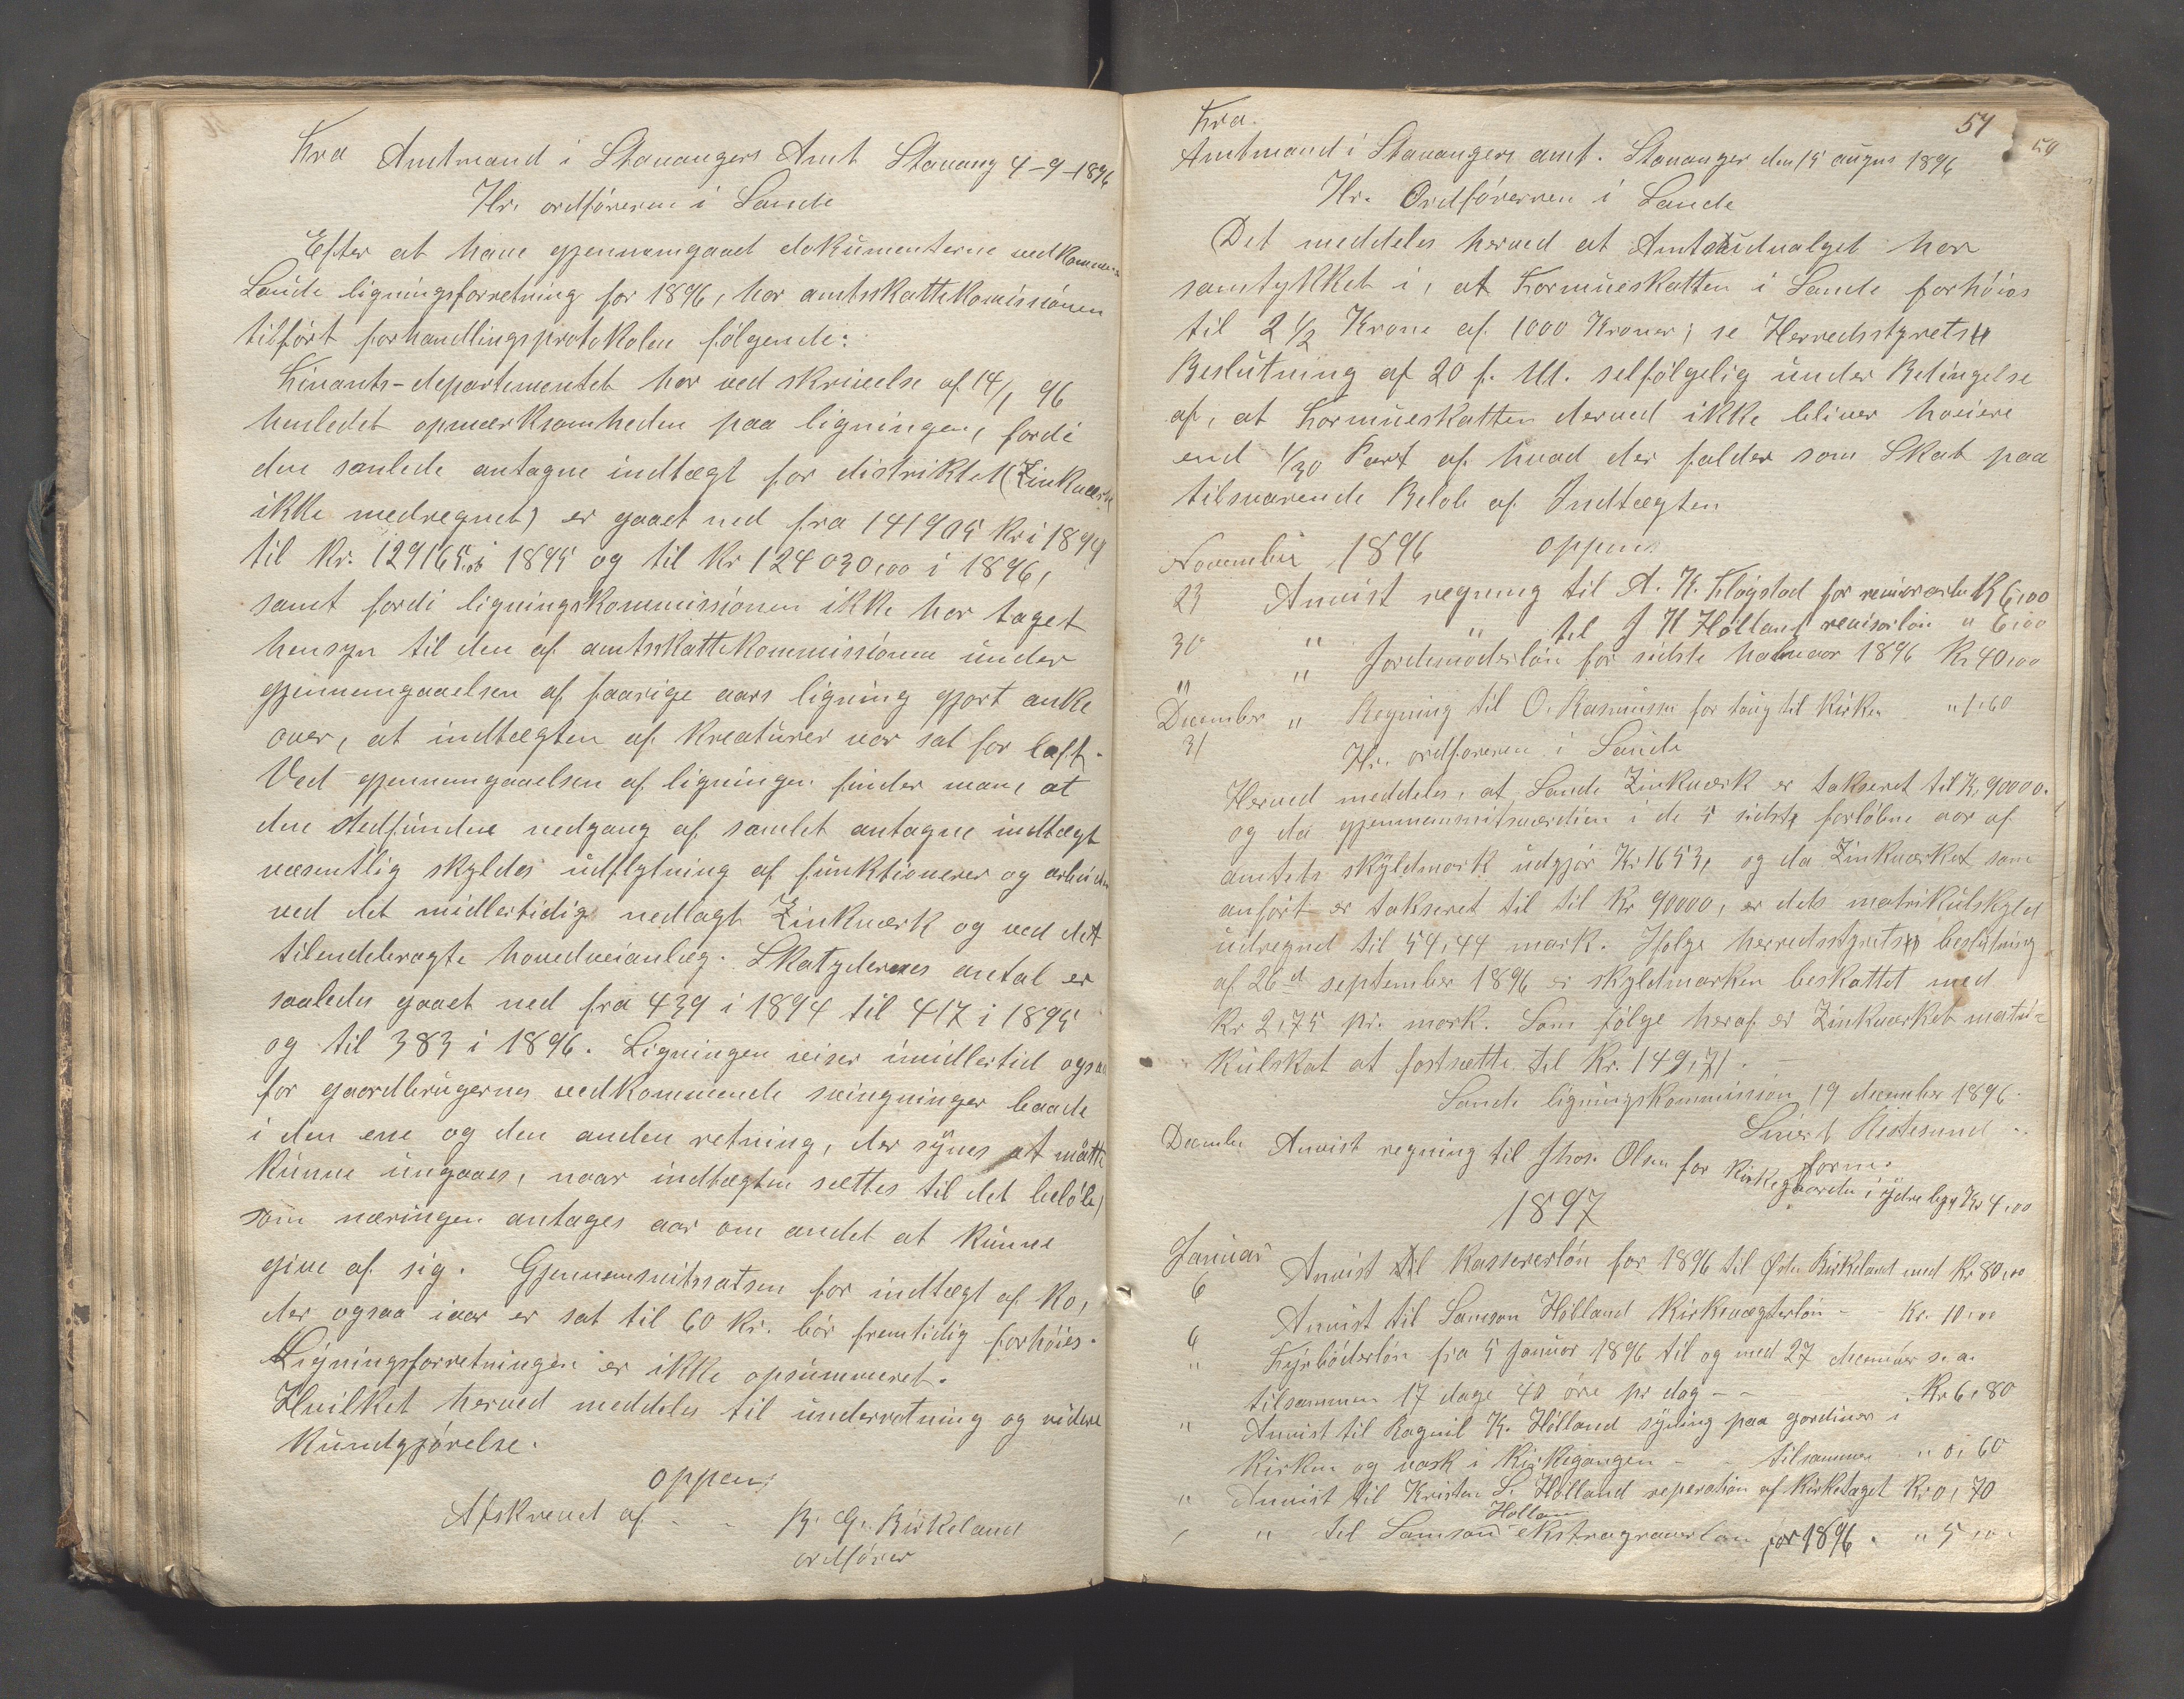 Fra Amtmand i Stavangers Amt Stavang 4-9-1896
Hr. ordføreren i Sande
Efter at have gjennemgaaet dokumenterne vedkommen
Saude ligningsforretning for 1896, har amtsskattekomissionen
tilført forhandlingsprotokolen følgende:
Finants-departementet har ved skrivelse af 14/1 96
henledet opmærksomheden paa ligningen, fordi
den samlede antagne indtægt for distriktet (Zinkværk
ikke medregnet) er gaaet ned fra 141905 kr i 1894
til kr. 129165,00 i 1895 og til kr 124030,00 i 1896,
samt fordi ligningskommissionen ikke har taget
hensyn til den af amtsskattekommissionen under
gjennemgaaelsen af faarige aars ligning gjort anke
over, at indtægten af kreaturer var sat for lavt.
Ved gjennemgaaelsen af ligningen finder man, at
den stedfundne nedgang af samlet antagne indtægt
væsentlig skyldes udflytning af funktionerer og arbeider
ved det midlertidig nedlagt Zinkværk og ved det
tilendebragte hovedveianlæg. Skatydernes antal er
saaledes gaaet ned fra 439 i 1894 til 417 i 1895
og til 383 i 1896. Ligningen viser imidlertid ogsaa
for gaardbrugernes vedkommende svingninger baade
i den ene og den anden retning, der synes at maatte
kunne ungaaes, naar indtægten sættes til det beløb,
som næringen antages aar om andet at kunne
give af sig. Gjennemsnitssatsen for indtægt af ko,
der ogsaa iaar er sat til 60 kr. bør fremtidig forhøies.
Ligningsforretningen er ikke opsummeret.
Hvilket herved meddeles til underretning og videre
kundgjørelse.
oppen
Afskrevet af - - B. G. Birkeland
ordfører
Fra. 54 54
Amtmand i Stavangers amt. Stavanger den 15 augus 1896
Hr. Ordførerren i Saude
Det meddeles herved at Amtsudvalget har
samtykket i, at Formueskatten i Sande forhøies
til 2 1/2 Krone af 1000 Kroner; se Herredsstyrets
Beslutning af 20 f. M. selfølgelig under Betingelse
af, at Formueskatten derved ikke bliver høiere
end 1/30 Part af hvad der falder som Skat paa
tilsvarende Beløb af Indtægten
November 1896 oppen
23 Anvist regning til A. K. Fløgstad for revisorarbe K 6,00
30 " " til J K Hølland revisorløn " 6,00
" " Jordemoderløn for sidste halvaar 1896 Kr 40,00
December " Regning til O. Rasmussen for taug til kirken " 1,60
31 Hr. ordføreren i Saude
Herved meddeles, at Sande Zinkværk er takseret til K. 90000.
og da gjennemsnitsværdien i de 5 sidste forløbne aar af
amtets skyldmark udgjør Kr 1653, og da Zinkværket som
anført er takseret til til Kr 90000, er dets matrikulskyld
udregned til 54,44 mark. Ifølge herredsstyrets beslutning
af 26d september 1896 er skyldmarken beskattet med
Kr 2,75 pr. mark. Som følge heraf er Zinkværket matri=
kulskat at fastsætte til Kr. 149,71. -
Sande ligningskommission 19 december 1896.
December Anvist regning til Jhos. Olsen for kirkegaarden i ydre bygd Kr 4,00
form.
1897
Januar
6 Anvist til Kassererløn for 1896 til Østen Birkeland med Kr 80,00
6 Anvist til Samson Hølland kirkevægterløn - - Kr. 10,00
" Fyrbøderløn fra 5 januar 1896 til og med 27 december s. a.
tilsammen 17 dage 40 øre pr dag - - Kr 6,80
" Anvist til Ragnil K. Hølland syning paa gardiner i
kirken og vask i kirkegangen - - tilsammen " 0,60
" Anvist til Kristen L. Hølland reperation af kirketaget Kr 0,70
" " til Samson Hølland ekstragraverløn for 1896. " 5,00